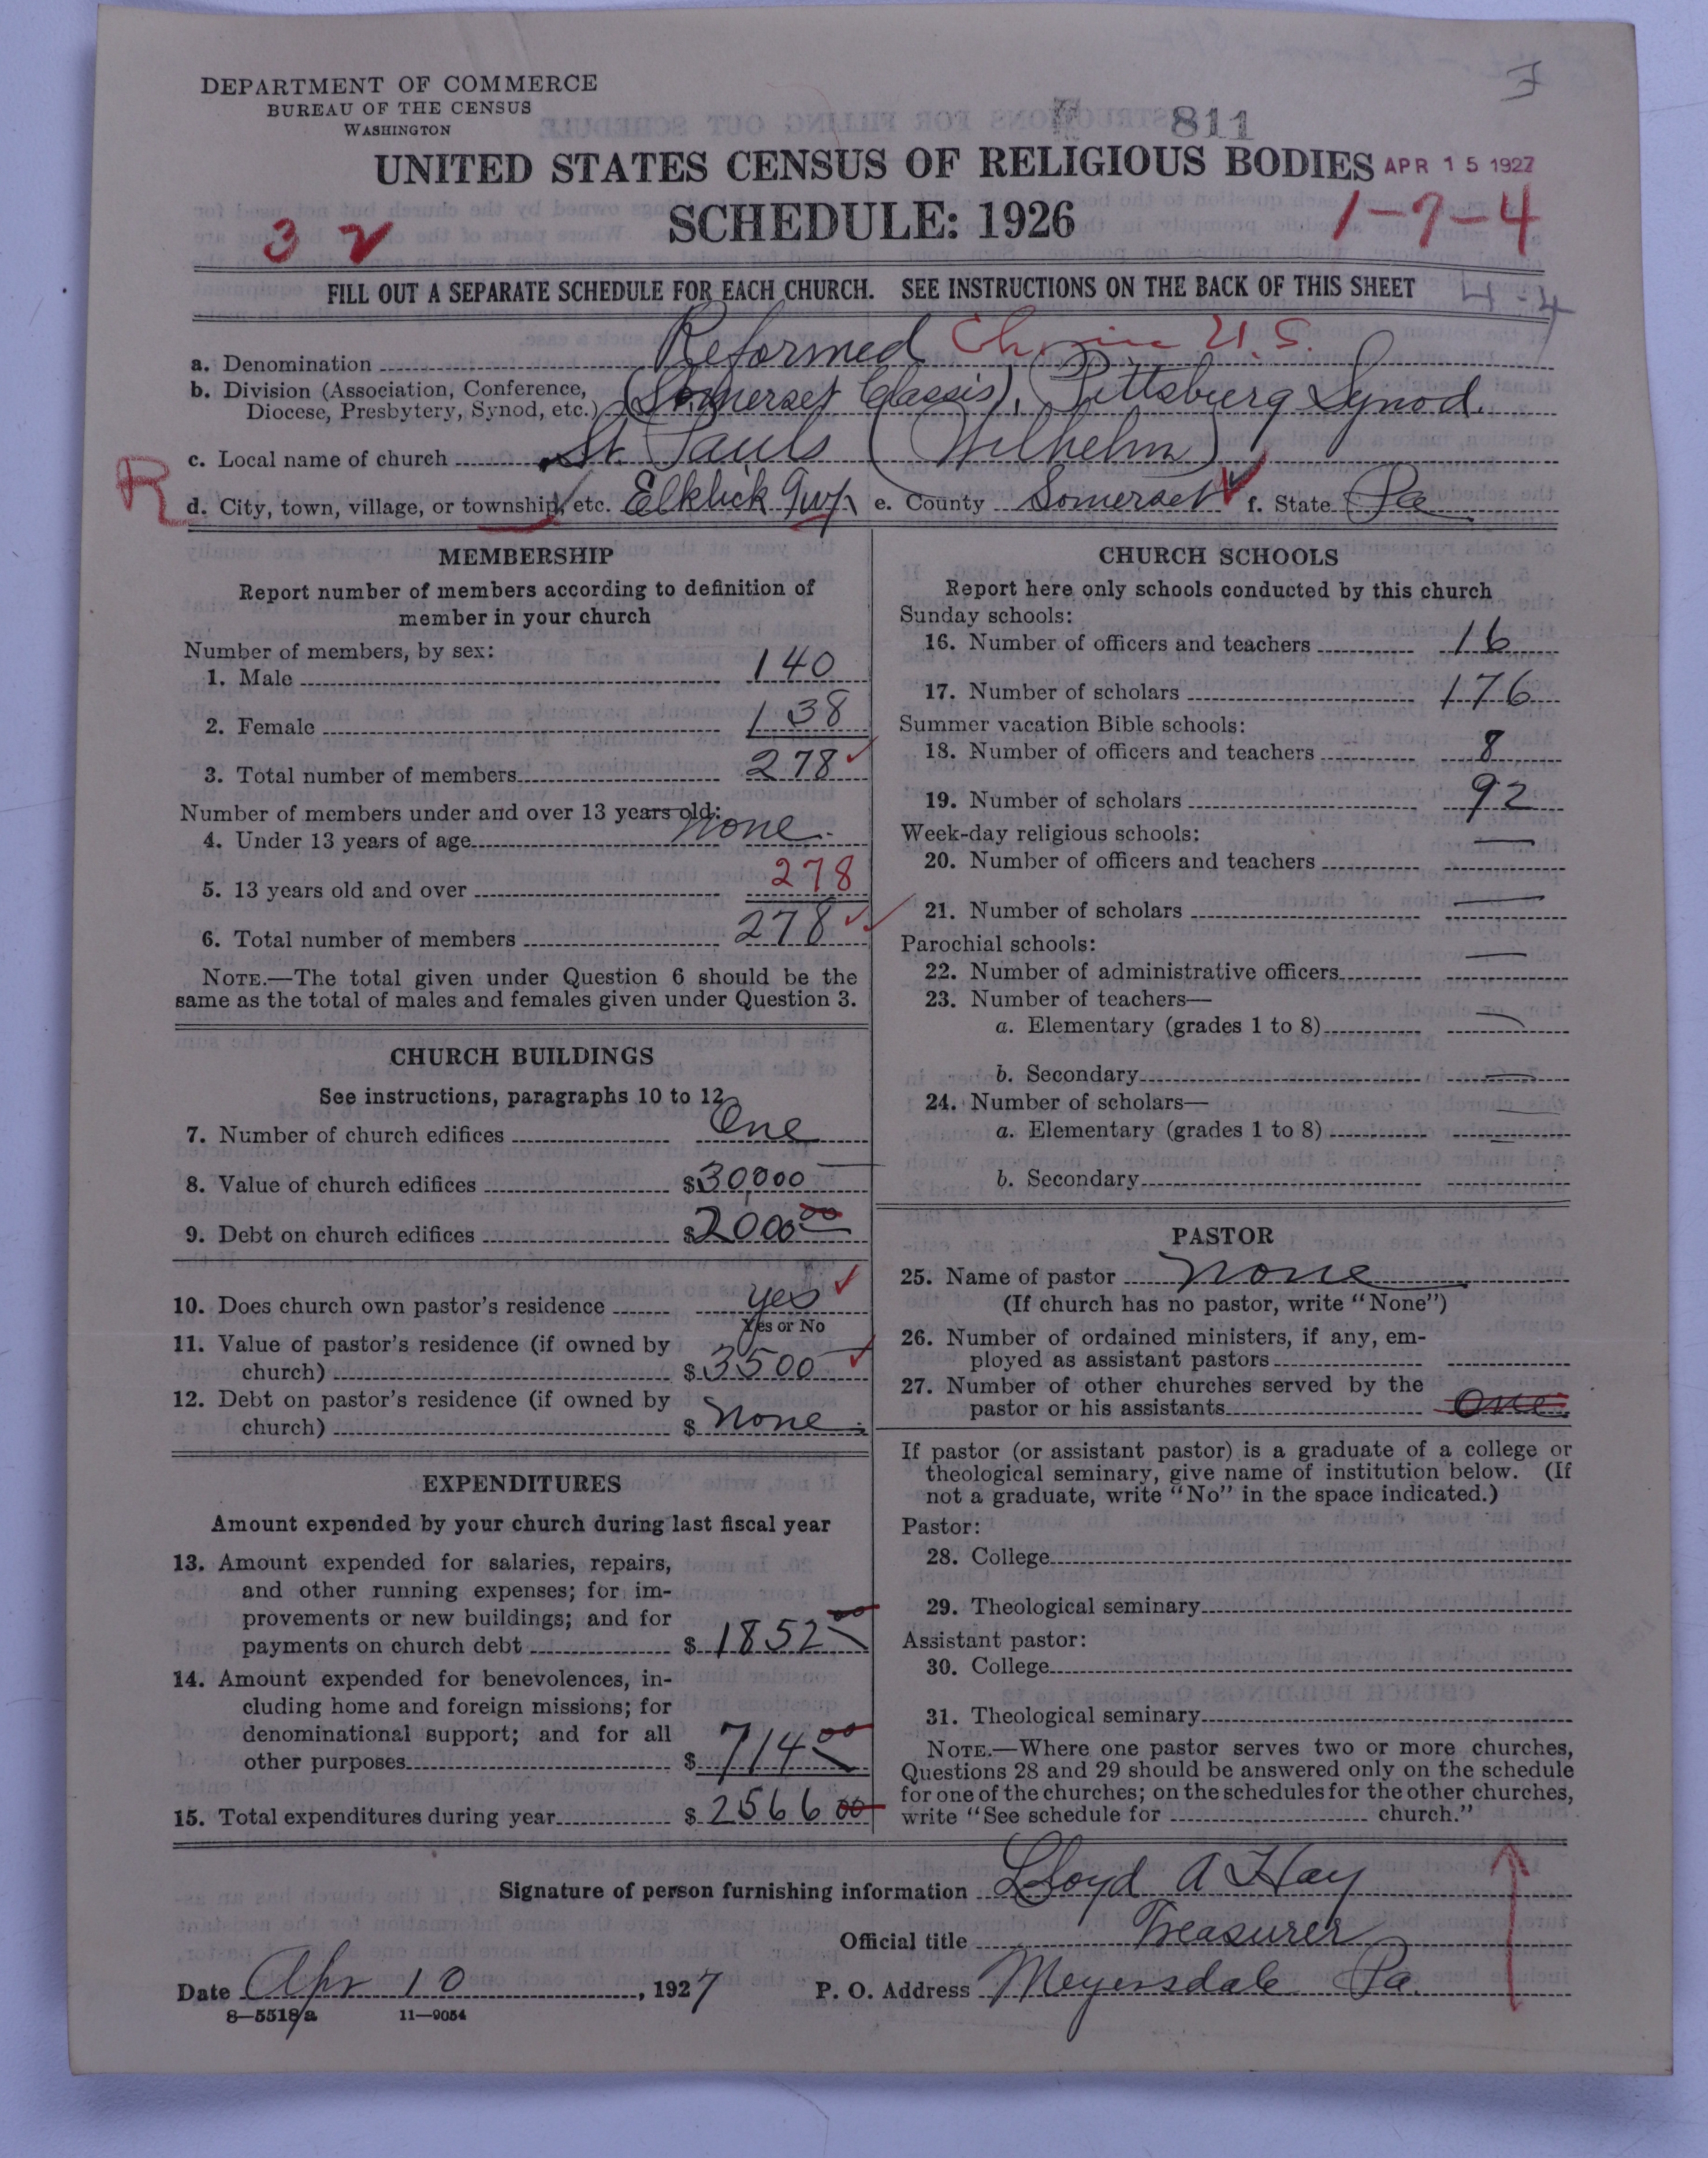 DEPARTMENT OF COMMERCE
BUREAU OF THE CENSUS
WASHINGTON
811
UNITED STATES CENSUS OF RELIGIOUS BODIES
APR 15 1927
SCHEDULE: 1926
3 2
1-7-4
FILL OUT A SEPARATE SCHEDULE FOR EACH CHURCH. SEE INSTRUCTIONS ON THE BACK OF THIS SHEET
4-4
a. Denomination Reformed Ch. in U.S.
b. Division (Association, Conference, Diocese, Presbytery, Synod, etc.) (Somerset Classis), Pittsburg Synod.
c. Local name of church St. Pauls (Wilhelm)
R
d. City, town, village, or township, etc. Elklick Twp. e. County Somerset f. State Pa
MEMBERSHIP
Report number of members according to definition of
member in your church
Number of members, by sex:
1. Male 140
2. Female 138
3. Total number of members 278
Number of members under and over 13 years old:
4. Under 13 years of age none.
5. 13 years old and over 278
6. Total number of members 278
NOTE.—The total given under Question 6 should be the
same as the total of males and females given under Question 3.
CHURCH BUILDINGS
See instructions, paragraphs 10 to 12
7. Number of church edifices One
8. Value of church edifices $30,000
9. Debt on church edifices $2000 00
10. Does church own pastor's residence yes
Yes or No
11. Value of pastor's residence (if owned by
church) $3500
12. Debt on pastor's residence (if owned by
church) $ none
EXPENDITURES
Amount expended by your church during last fiscal year
13. Amount expended for salaries, repairs,
and other running expenses; for im-
provements or new buildings; and for
payments on church debt $ 1852 00
14. Amount expended for benevolences, in-
cluding home and foreign missions; for
denominational support; and for all
other purposes $ 714 00
15. Total expenditures during year $ 2566 00
CHURCH SCHOOLS
Report here only schools conducted by this church
Sunday schools:
16. Number of officers and teachers 16
17. Number of scholars 176
Summer vacation Bible schools:
18. Number of officers and teachers 8
19. Number of scholars 92
Week-day religious schools:
20. Number of officers and teachers —
21. Number of scholars —
Parochial schools:
22. Number of administrative officers —
23. Number of teachers—
a. Elementary (grades 1 to 8) —
b. Secondary —
24. Number of scholars—
a. Elementary (grades 1 to 8) —
b. Secondary
PASTOR
25. Name of pastor none
(If church has no pastor, write "None")
26. Number of ordained ministers, if any, em-
ployed as assistant pastors
27. Number of other churches served by the
pastor or his assistants One
If pastor (or assistant pastor) is a graduate of a college or
theological seminary, give name of institution below. (If
not a graduate, write "No" in the space indicated.)
Pastor:
28. College
29. Theological seminary
Assistant pastor:
30. College
31. Theological seminary
NOTE.—Where one pastor serves two or more churches,
Questions 28 and 29 should be answered only on the schedule
for one of the churches; on the schedules for the other churches,
write "See schedule for church."
Signature of person furnishing information Lloyd A Hay
Official title Treasurer
Date Apr 10, 1927 P. O. Address Meyersdale Pa.
8—5518a 11—9054